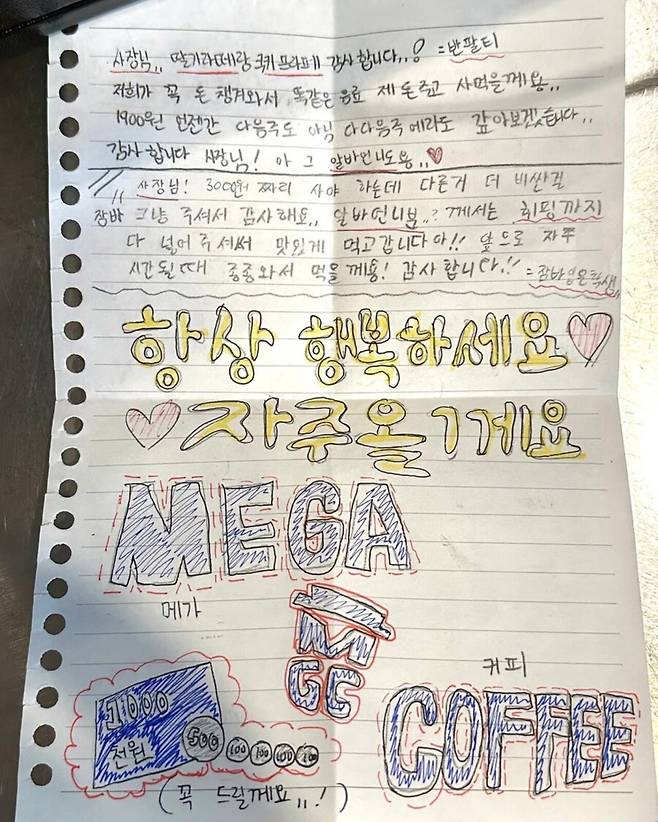 사장님,, 딸기라떼랑 쿠키프라페 감사합니다,,! =반팔티
저희가 꼭 돈 챙겨와서 똑같은 음료 제돈주고 사먹을께용,,
1900원 언젠간 다음주도 아님 다다음주에라도 갚아보겠습니다,,
감사합니다 사장님! 아 그 알바언니도용,,♥
사장님! 3000원 짜리 사야 하는데 다른거 더 비싼걸
그냥 주셔서 감사해요,, 알바언니분,,? 께서는 휘핑까지
다 넣어주셔써 맛있게 먹고갑니다아!! 앞으로 자주
시간될때 종종와서 먹을께용! 감사합니다!!
항상 행복하세요♡
♡자주올게요
MEGA
메가
M
GC
커피
COFFEE
1000
천원
500 100 100 100 100
(꼭 드릴께요,,!)